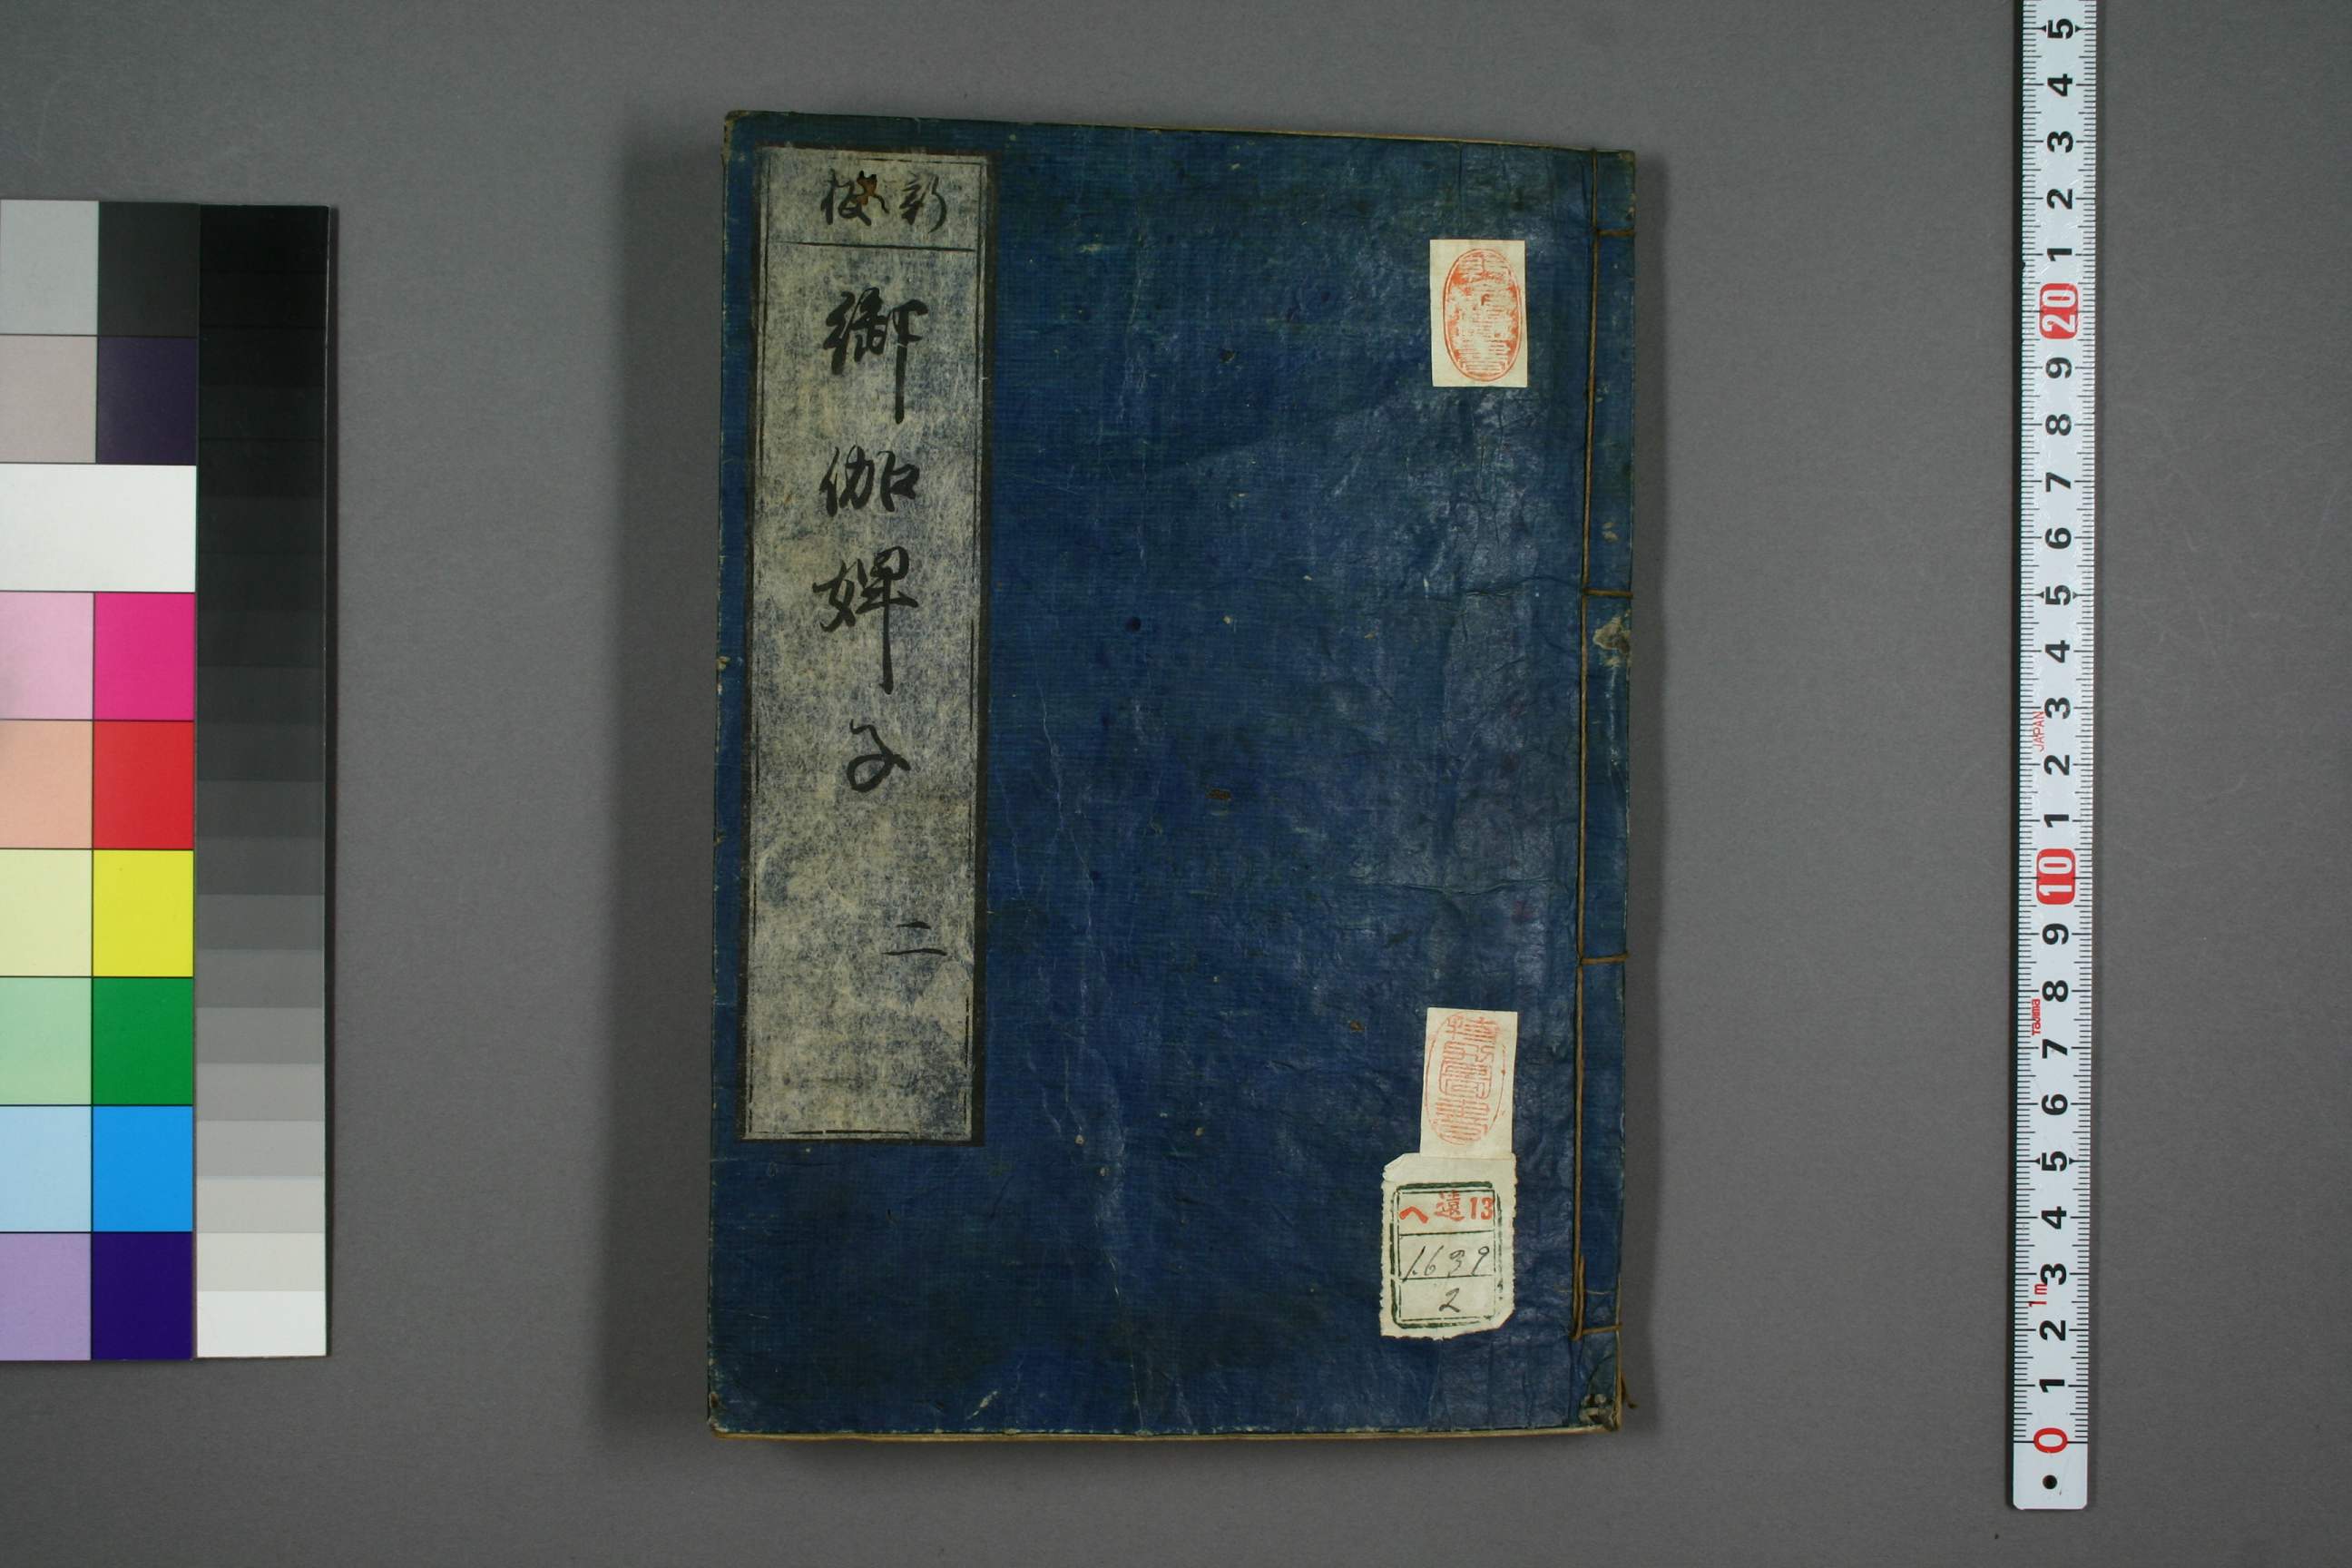 新板
御伽婢子
二
ヘ遠13
1639
2
5
4
3
2
1
20
9
8
7
6
5
4
3
2
1
10
9
8
7
6
5
4
3
2
1
0
JAPAN
Tajima
1m